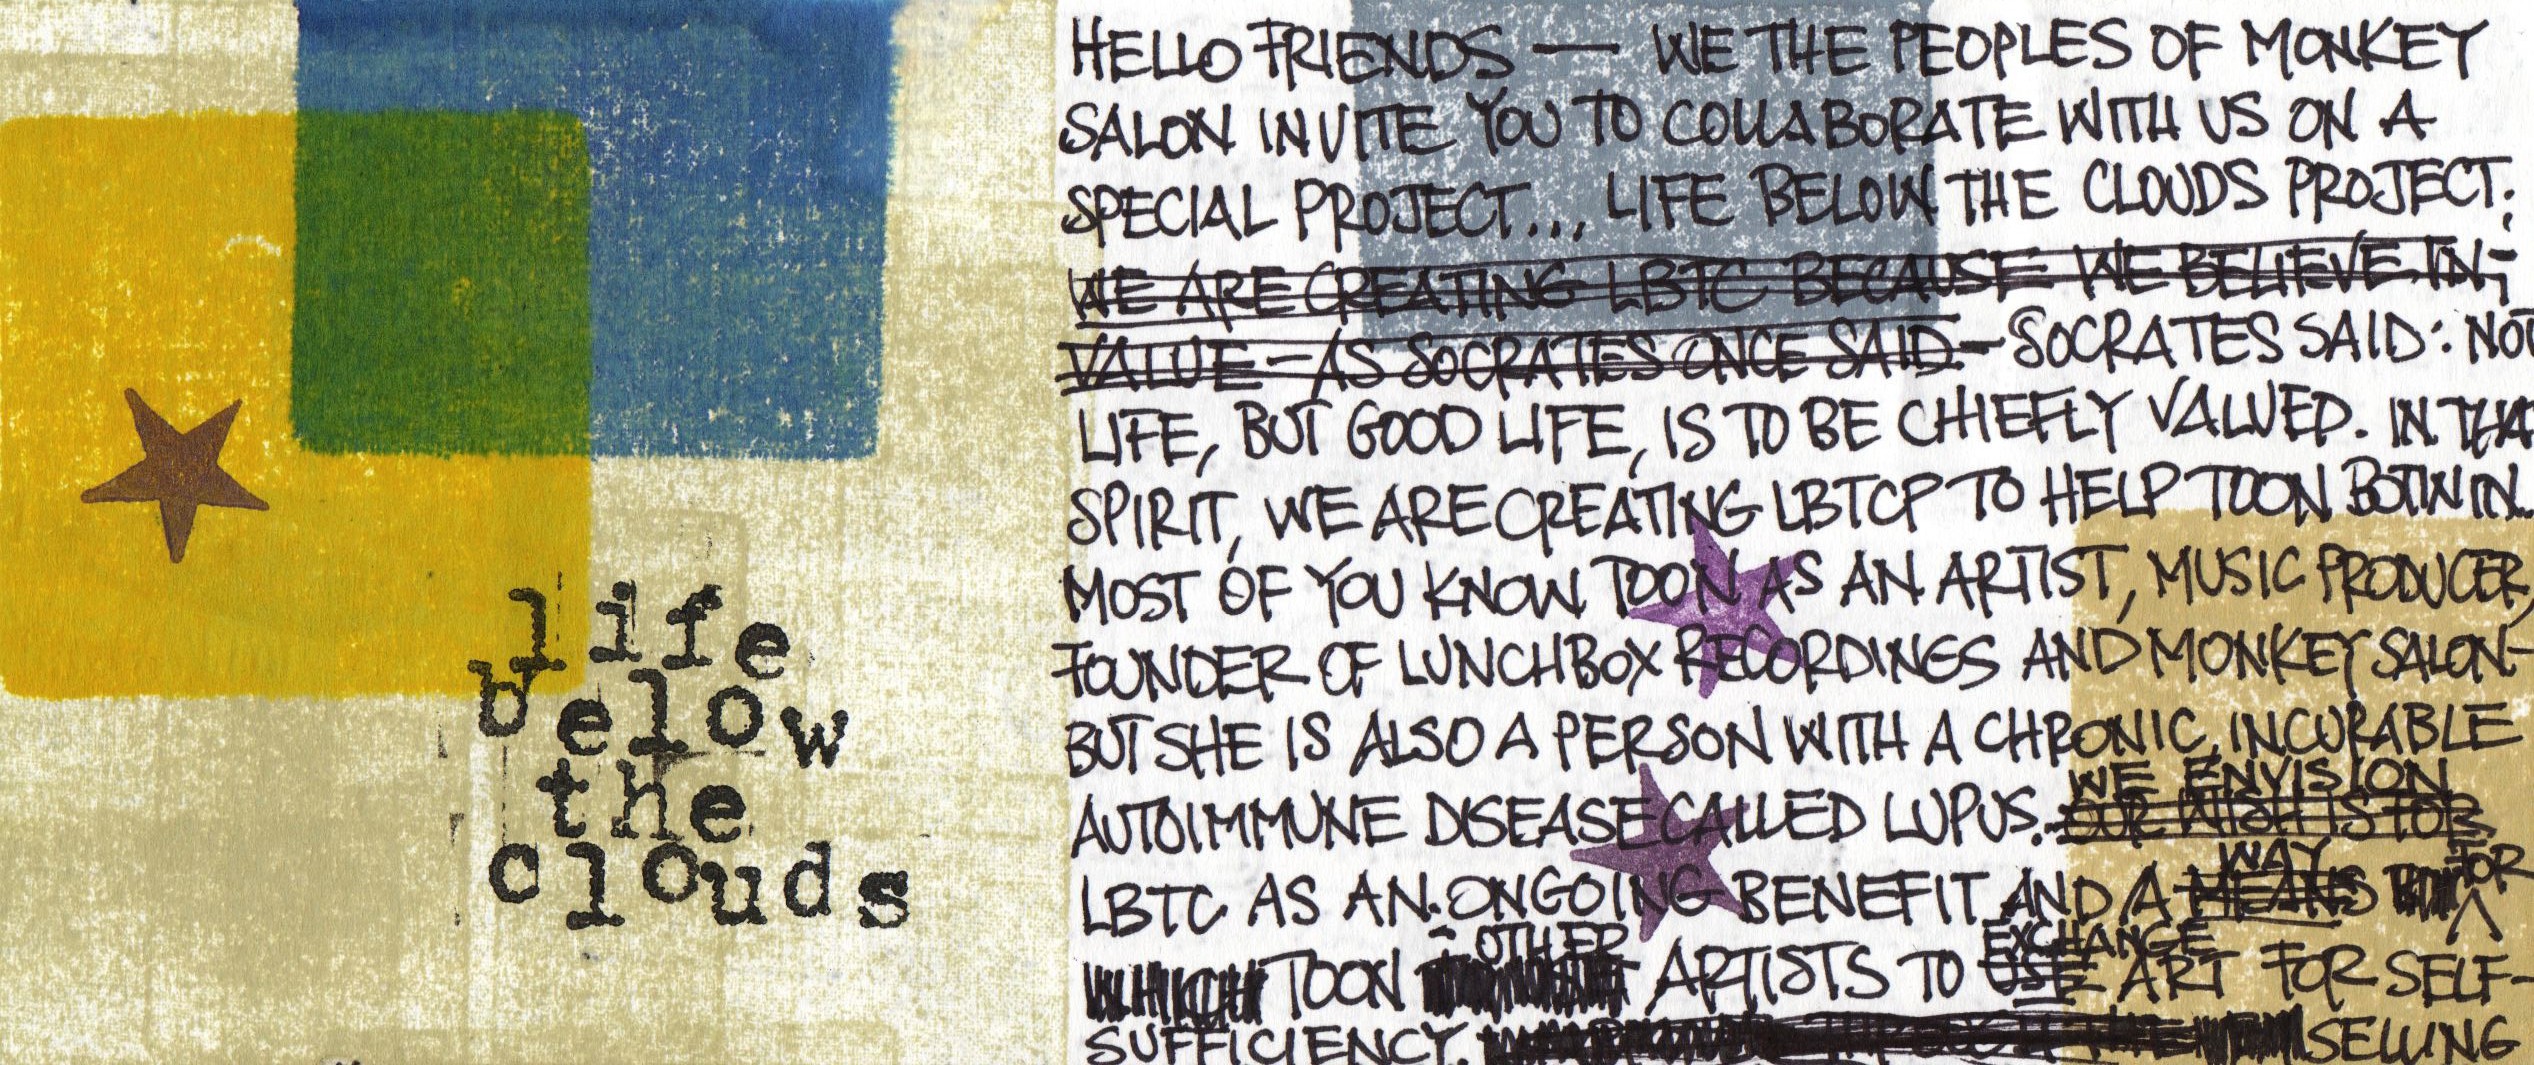 life
below
the
clouds
HELLO FRIENDS — WE THE PEOPLES OF MONKEY
SALON INVITE YOU TO COLLABORATE WITH US ON A
SPECIAL PROJECT... LIFE BELOW THE CLOUDS PROJECT;
WE ARE CREATING LBTC BECAUSE WE BELIEVE IN
VALUE - AS SOCRATES ONCE SAID - SOCRATES SAID: NOT
LIFE, BUT GOOD LIFE, IS TO BE CHIEFLY VALUED. IN THA
SPIRIT, WE ARE CREATING LBTCP TO HELP TOON
MOST OF YOU KNOW TOON AS AN ARTIST, MUSIC PRODUCER,
FOUNDER OF LUNCHBOX RECORDINGS AND MONKEY SALON-
BUT SHE IS ALSO A PERSON WITH A CHRONIC, INCURABLE
WE ENVISION
AUTOIMMUNE DISEASE CALLED LUPUS. OUR WISH IS FOR
WAY FOR
LBTC AS AN ONGOING BENEFIT AND A MEANS
OTHER EXCHANGE
WHICH TOON ARTISTS TO USE ART FOR SELF-
SUFFICIENCY. SELLING